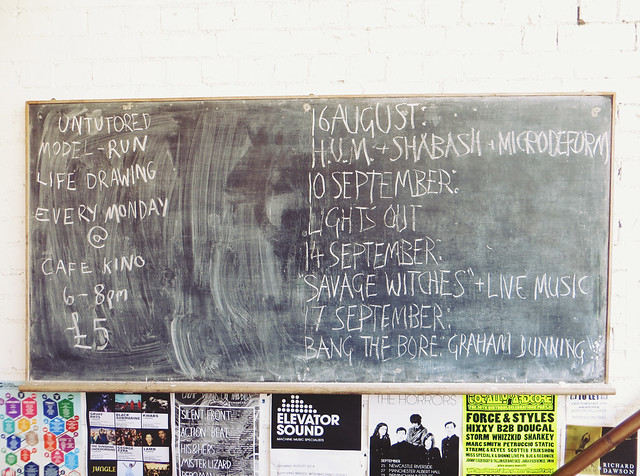 UNTUTORED
MODEL-RUN
LIFE DRAWING
EVERY MONDAY
@
CAFE KINO
6-8pm
£5
16 AUGUST:
H.U.M. + SHABASH + MICRODEFORM
10 SEPTEMBER:
LIGHTS OUT
14 SEPTEMBER:
"SAVAGE WITCHES" + LIVE MUSIC
17 SEPTEMBER:
BANG THE BORE: GRAHAM DUNNING
JUNGLE
SILENT FRONT
ACTION BEAT
HIS & HERS
MISTER LIZARD
ELEVATOR
SOUND
MACHINE MUSIC SPECIALISTS
THE HORRORS
FORCE & STYLES
HIXXY B2B DOUGAL
STORM WHIZZKID SHARKEY
MARC SMITH PETRUCCIO STATIC
TO LET
RICHARD
DAWSON